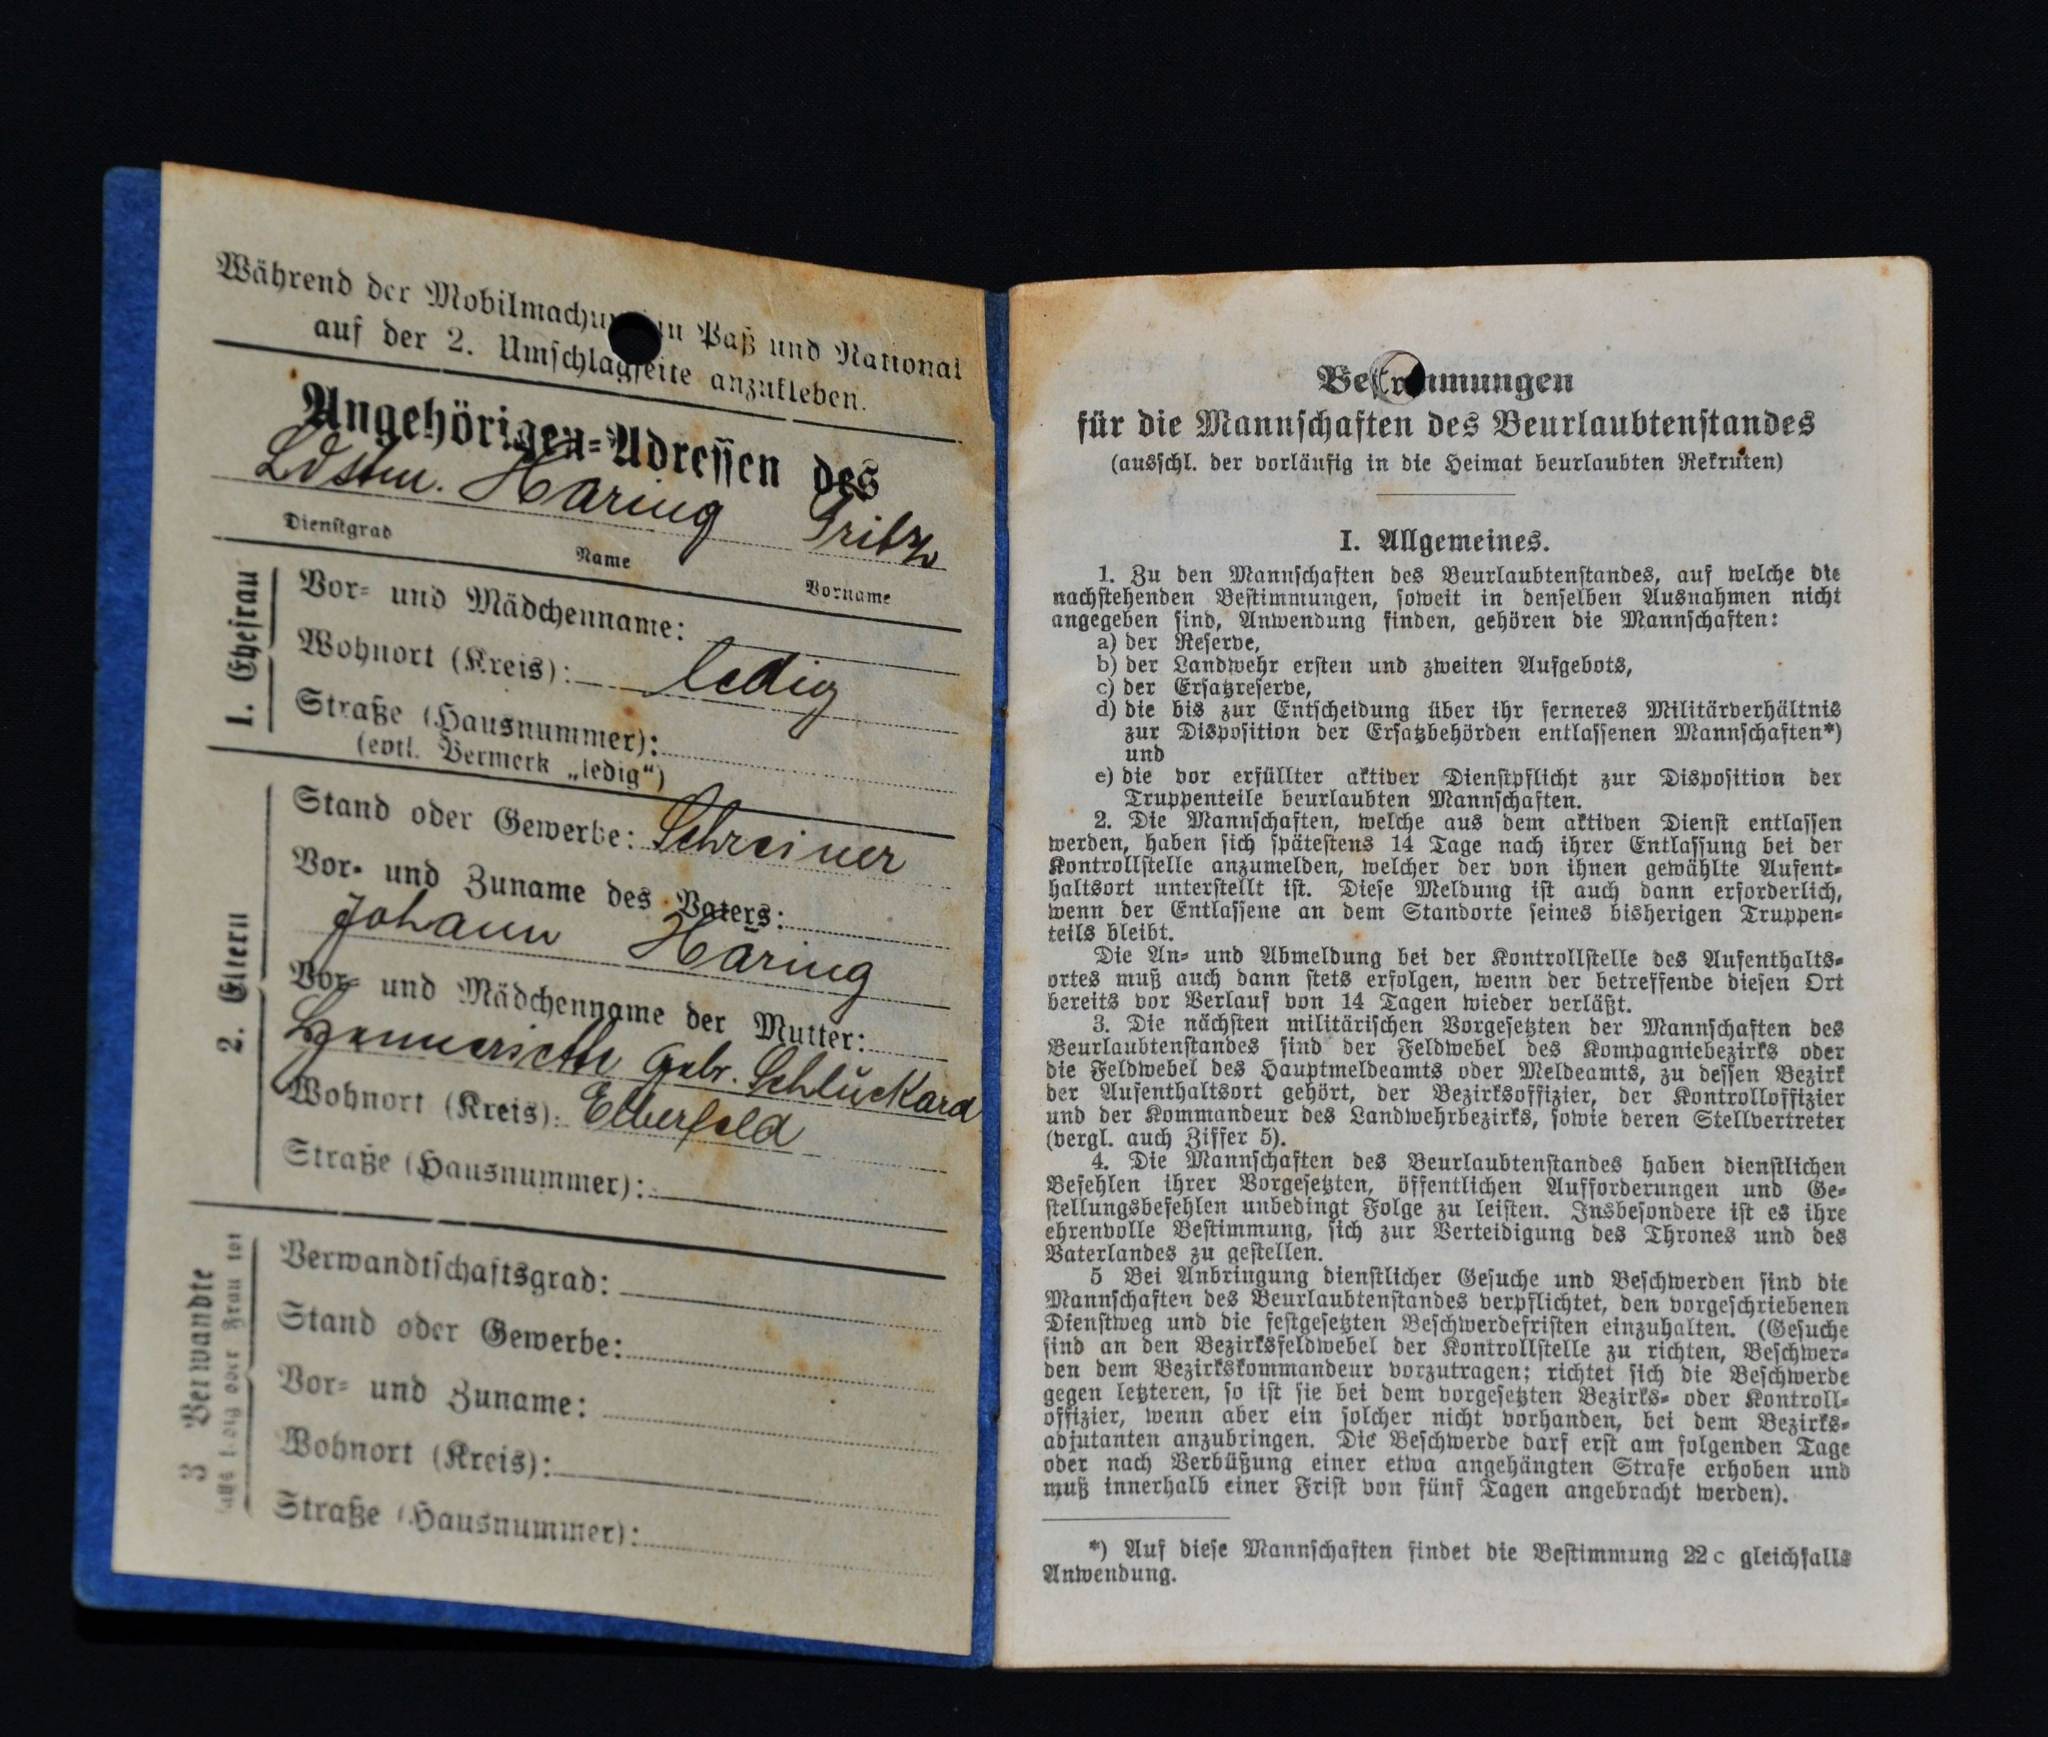 Während der Mobilmachun in Paß und National
auf der 2. Umschlagseite anzukleben.
Angehörigen-Adressen des
Ldstm. Häring Fritz
Dienstgrad Name Vorname
1. Ehefrau
Vor- und Mädchenname:
Wohnort (Kreis): ledig
Straße (Hausnummer):
(evtl. Vermerk „ledig“)
2. Eltern
Stand oder Gewerbe: Schreiner
Vor- und Zuname des Vaters:
Johann Häring
Vor- und Mädchenname der Mutter:
gebr. Schluckard
Wohnort (Kreis): Elberfeld
Straße (Hausnummer):
3 Verwandte
falls ledig oder Frau tot
Verwandtschaftsgrad:
Stand oder Gewerbe:
Vor- und Zuname:
Wohnort (Kreis):
Straße (Hausnummer):
Bestimmungen
für die Mannschaften des Beurlaubtenstandes
(ausschl. der vorläufig in die Heimat beurlaubten Rekruten)
I. Allgemeines.
1. Zu den Mannschaften des Beurlaubtenstandes, auf welche die
nachstehenden Bestimmungen, soweit in denselben Ausnahmen nicht
angegeben sind, Anwendung finden, gehören die Mannschaften:
a) der Reserve,
b) der Landwehr ersten und zweiten Aufgebots,
c) der Ersatzreserve,
d) die bis zur Entscheidung über ihr ferneres Militärverhältnis
zur Disposition der Ersatzbehörden entlassenen Mannschaften*)
und
e) die vor erfüllter aktiver Dienstpflicht zur Disposition der
Truppenteile beurlaubten Mannschaften.
2. Die Mannschaften, welche aus dem aktiven Dienst entlassen
werden, haben sich spätestens 14 Tage nach ihrer Entlassung bei der
Kontrollstelle anzumelden, welcher der von ihnen gewählte Aufent-
haltsort unterstellt ist. Diese Meldung ist auch dann erforderlich,
wenn der Entlassene an dem Standorte seines bisherigen Truppen-
teils bleibt.
Die An- und Abmeldung bei der Kontrollstelle des Aufenthalts-
ortes muß auch dann stets erfolgen, wenn der betreffende diesen Ort
bereits vor Verlauf von 14 Tagen wieder verläßt.
3. Die nächsten militärischen Vorgesetzten der Mannschaften des
Beurlaubtenstandes sind der Feldwebel des Kompagniebezirks oder
die Feldwebel des Hauptmeldeamts oder Meldeamts, zu dessen Bezirk
der Aufenthaltsort gehört, der Bezirksoffizier, der Kontrolloffizier
und der Kommandeur des Landwehrbezirks, sowie deren Stellvertreter
(vergl. auch Ziffer 5).
4. Die Mannschaften des Beurlaubtenstandes haben dienstlichen
Befehlen ihrer Vorgesetzten, öffentlichen Aufforderungen und Ge-
stellungsbefehlen unbedingt Folge zu leisten. Insbesondere ist es ihre
ehrenvolle Bestimmung, sich zur Verteidigung des Thrones und des
Vaterlandes zu gestellen.
5 Bei Anbringung dienstlicher Gesuche und Beschwerden sind die
Mannschaften des Beurlaubtenstandes verpflichtet, den vorgeschriebenen
Dienstweg und die festgesetzten Beschwerdefristen einzuhalten. (Gesuche
sind an den Bezirksfeldwebel der Kontrollstelle zu richten, Beschwer-
den dem Bezirkskommandeur vorzutragen; richtet sich die Beschwerde
gegen letzteren, so ist sie bei dem vorgesetzten Bezirks- oder Kontroll-
offizier, wenn aber ein solcher nicht vorhanden, bei dem Bezirks-
adjutanten anzubringen. Die Beschwerde darf erst am folgenden Tage
oder nach Verbüßung einer etwa angehängten Strafe erhoben und
muß innerhalb einer Frist von fünf Tagen angebracht werden).
*) Auf diese Mannschaften findet die Bestimmung 22 c gleichfalls
Anwendung.